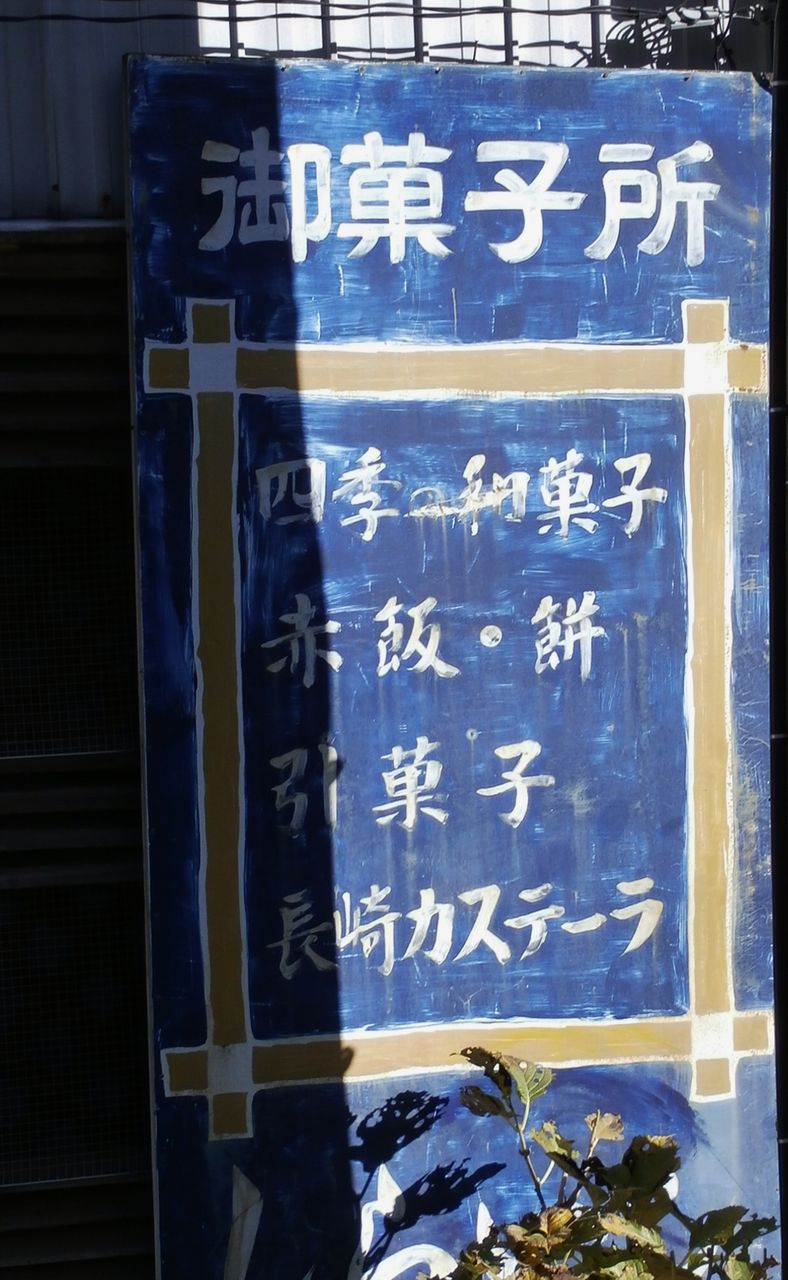 御菓子所
四季の和菓子
赤飯・餅
引菓子
長崎カステーラ